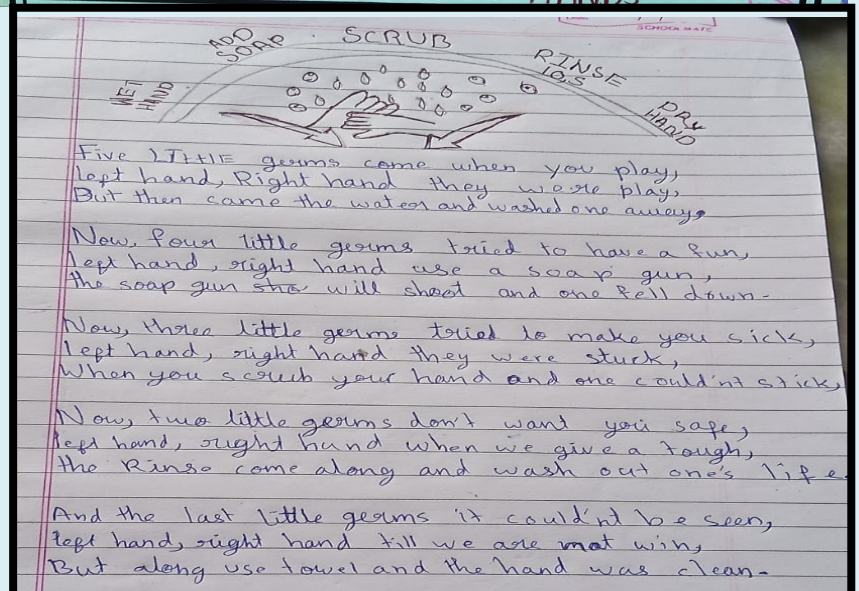 SCHOOL MATE
WET
HAND
ADD
SOAP
SCRUB
RINSE
10.S
DRY
HAND
Five LITTlE germs come when you play,
left hand, Right hand they were play,
But then came the water and washed one away,
Now, four little germs tried to have a fun,
left hand, right hand use a soap gun,
the soap gun sho will shoot and one fell down-
Now, three little germs tried to make you sick,
left hand, right hand they were stuck,
When you scrub your hand and one could'nt stick,
Now, two little germs don't want you safe,
left hand, right hand when we give a tough,
the Rinse come along and wash out one's life.
And the last little germs it could'nt be seen,
left hand, right hand till we are not win,
But along use towel and the hand was clean-